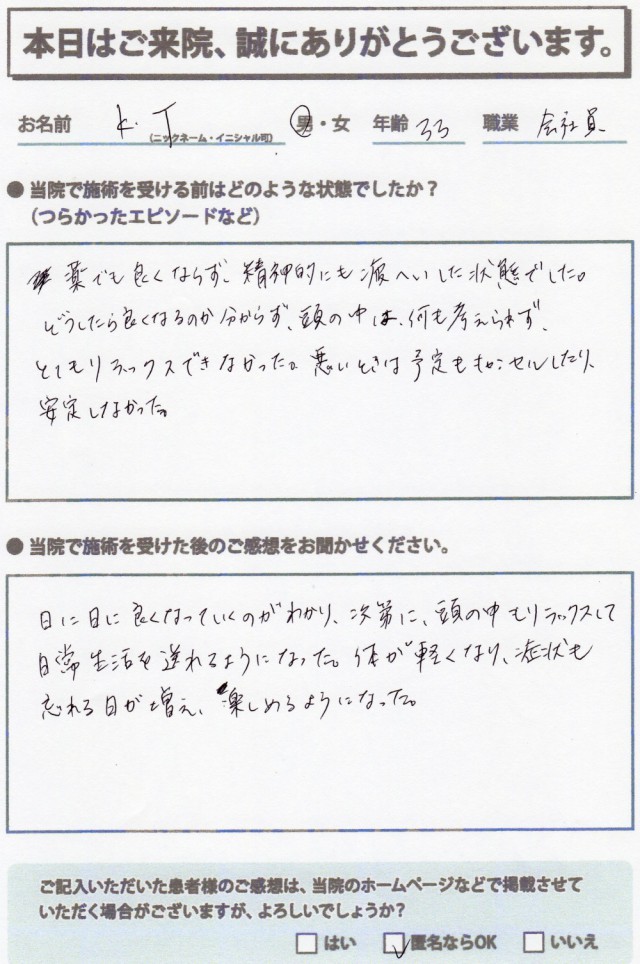 本日はご来院、誠にありがとうございます。
お名前 K.J (ニックネーム・イニシャル可) 男・女 年齢 33 職業 会社員
● 当院で施術を受ける前はどのような状態でしたか？
（つらかったエピソードなど）
薬でも良くならず、精神的にも疲へいした状態でした。
どうしたら良くなるのか分からず、頭の中は、何も考えられず、
とてもリラックスできなかった。悪いときは予定もキャンセルしたり、
安定しなかった。
● 当院で施術を受けた後のご感想をお聞かせください。
日に日に良くなっていくのがわかり、次第に、頭の中もリラックスして
日常生活を送れるようになった。体が軽くなり、症状も
忘れる日が増え、楽しめるようになった。
ご記入いただいた患者様のご感想は、当院のホームページなどで掲載させて
いただく場合がございますが、よろしいでしょうか？
□ はい ☑ 匿名ならOK □ いいえ